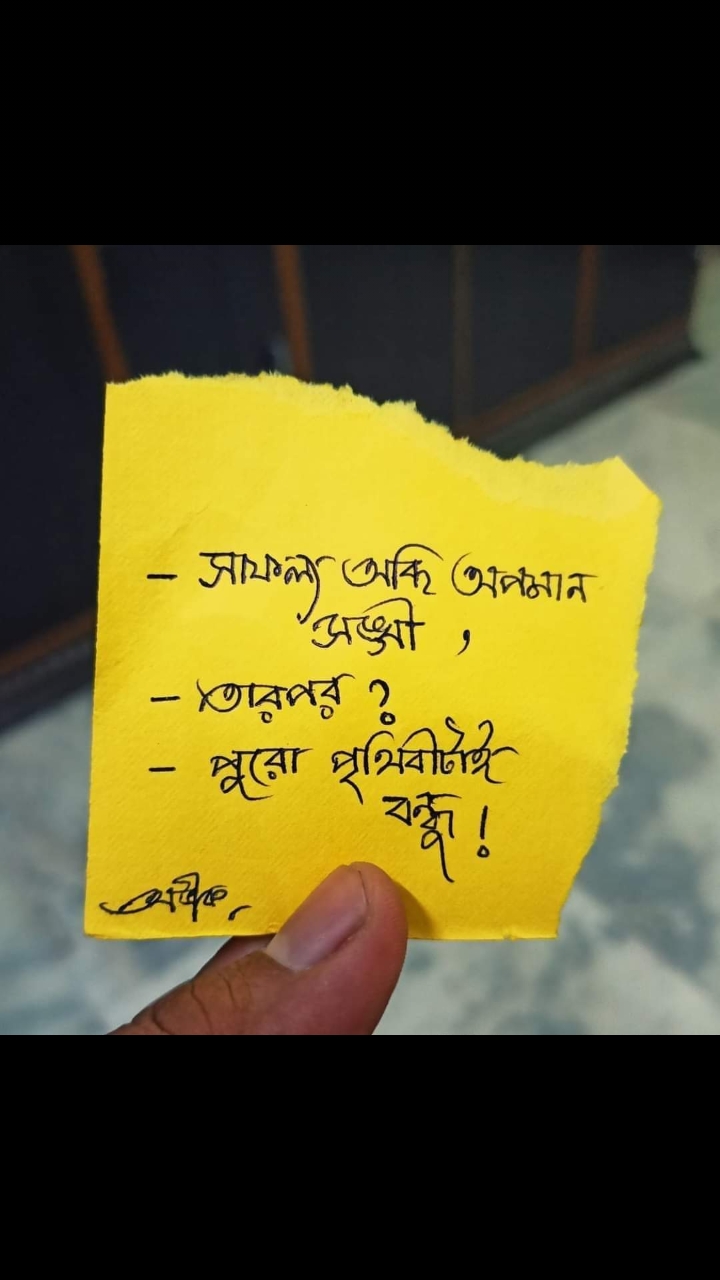 - সাফল্য অব্ধি অপমান
সঙ্গী,
- তারপর?
- পুরো পৃথিবীটাই
বন্ধু!